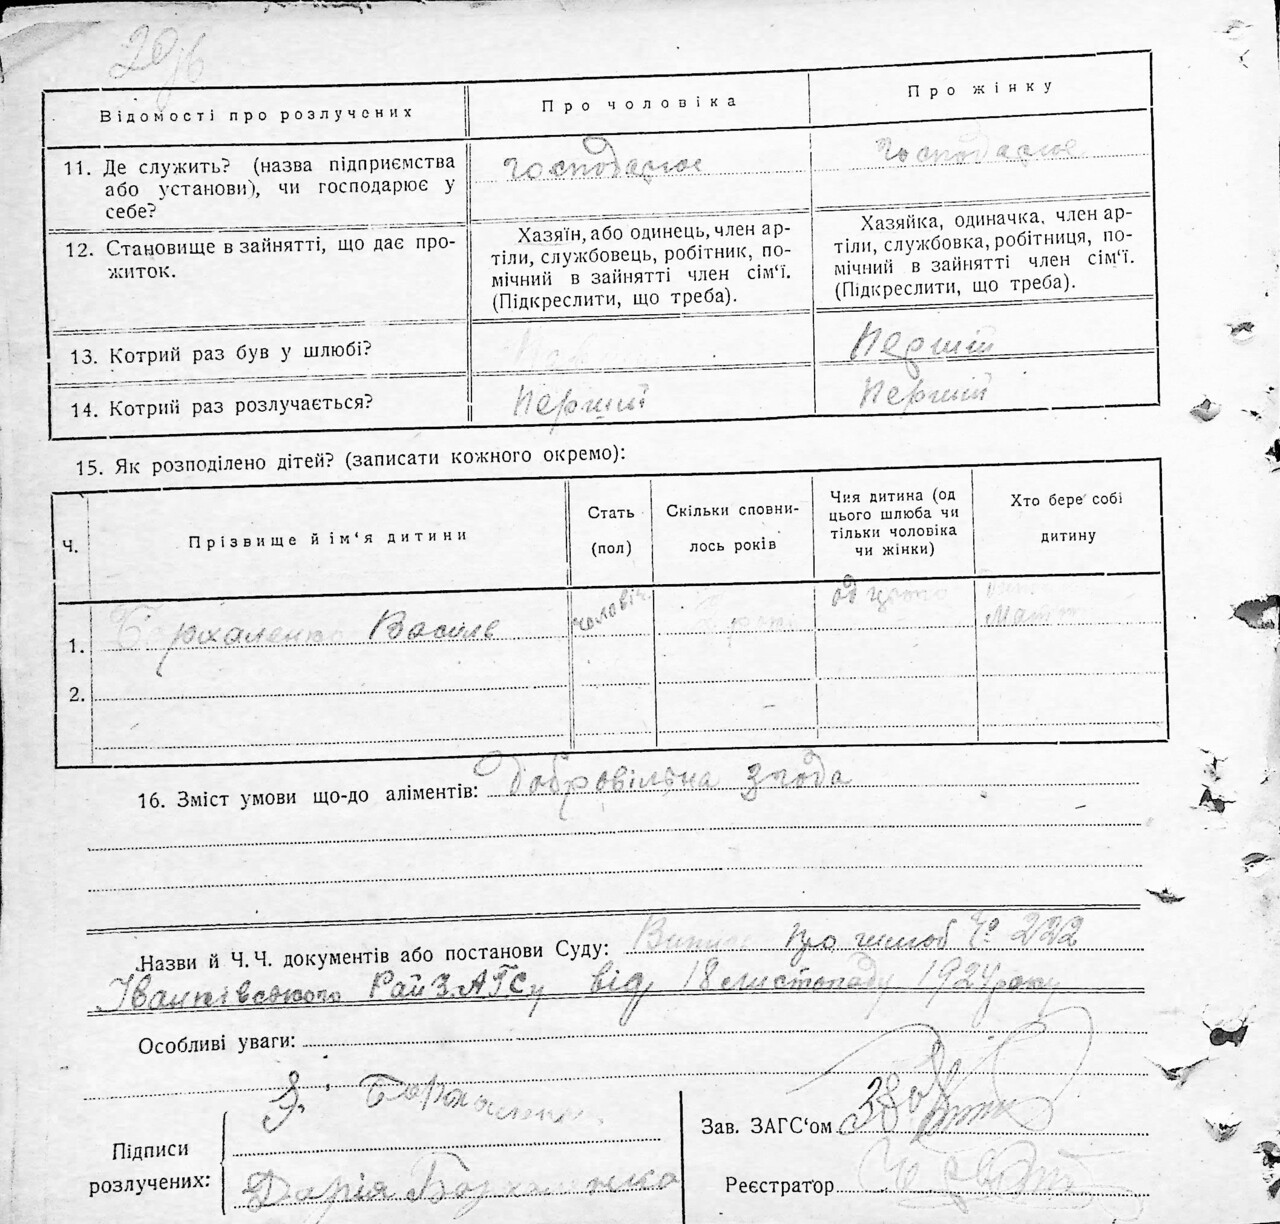 Відомості про розлучених
Про чоловіка
Про жінку
11. Де служить? (назва підприємства
або установи), чи господарює у
себе?
господарює
господарює
12. Становище в зайнятті, що дає про-
житок.
Хазяїн, або одинець, член ар-
тіли, службовець, робітник, по-
мічний в зайнятті член сім‘ї.
(Підкреслити, що треба).
Хазяйка, одиначка, член ар-
тіли, службовка, робітниця, по-
мічний в зайнятті член сім‘ї.
(Підкреслити, що треба).
13. Котрий раз був у шлюбі?
Перший
14. Котрий раз розлучається?
Перший
Перший
15. Як розподілено дітей? (записати кожного окремо):
Ч.
Прізвище й ім‘я дитини
Стать
(пол)
Скільки сповни-
лось років
Чия дитина (од
цього шлюба чи
тільки чоловіка
чи жінки)
Хто бере собі
дитину
1.
Василь
чоловіч.
од цього
2.
16. Зміст умови що-до аліментів: добровільна згода
Назви й Ч.Ч. документів або постанови Суду: про шлюб № 232
Іванківського РайЗАГСу від 18 листопаду 1924 року
Особливі уваги:
Підписи
розлучених:
Дарія
Зав. ЗАГС‘ом
Реєстратор